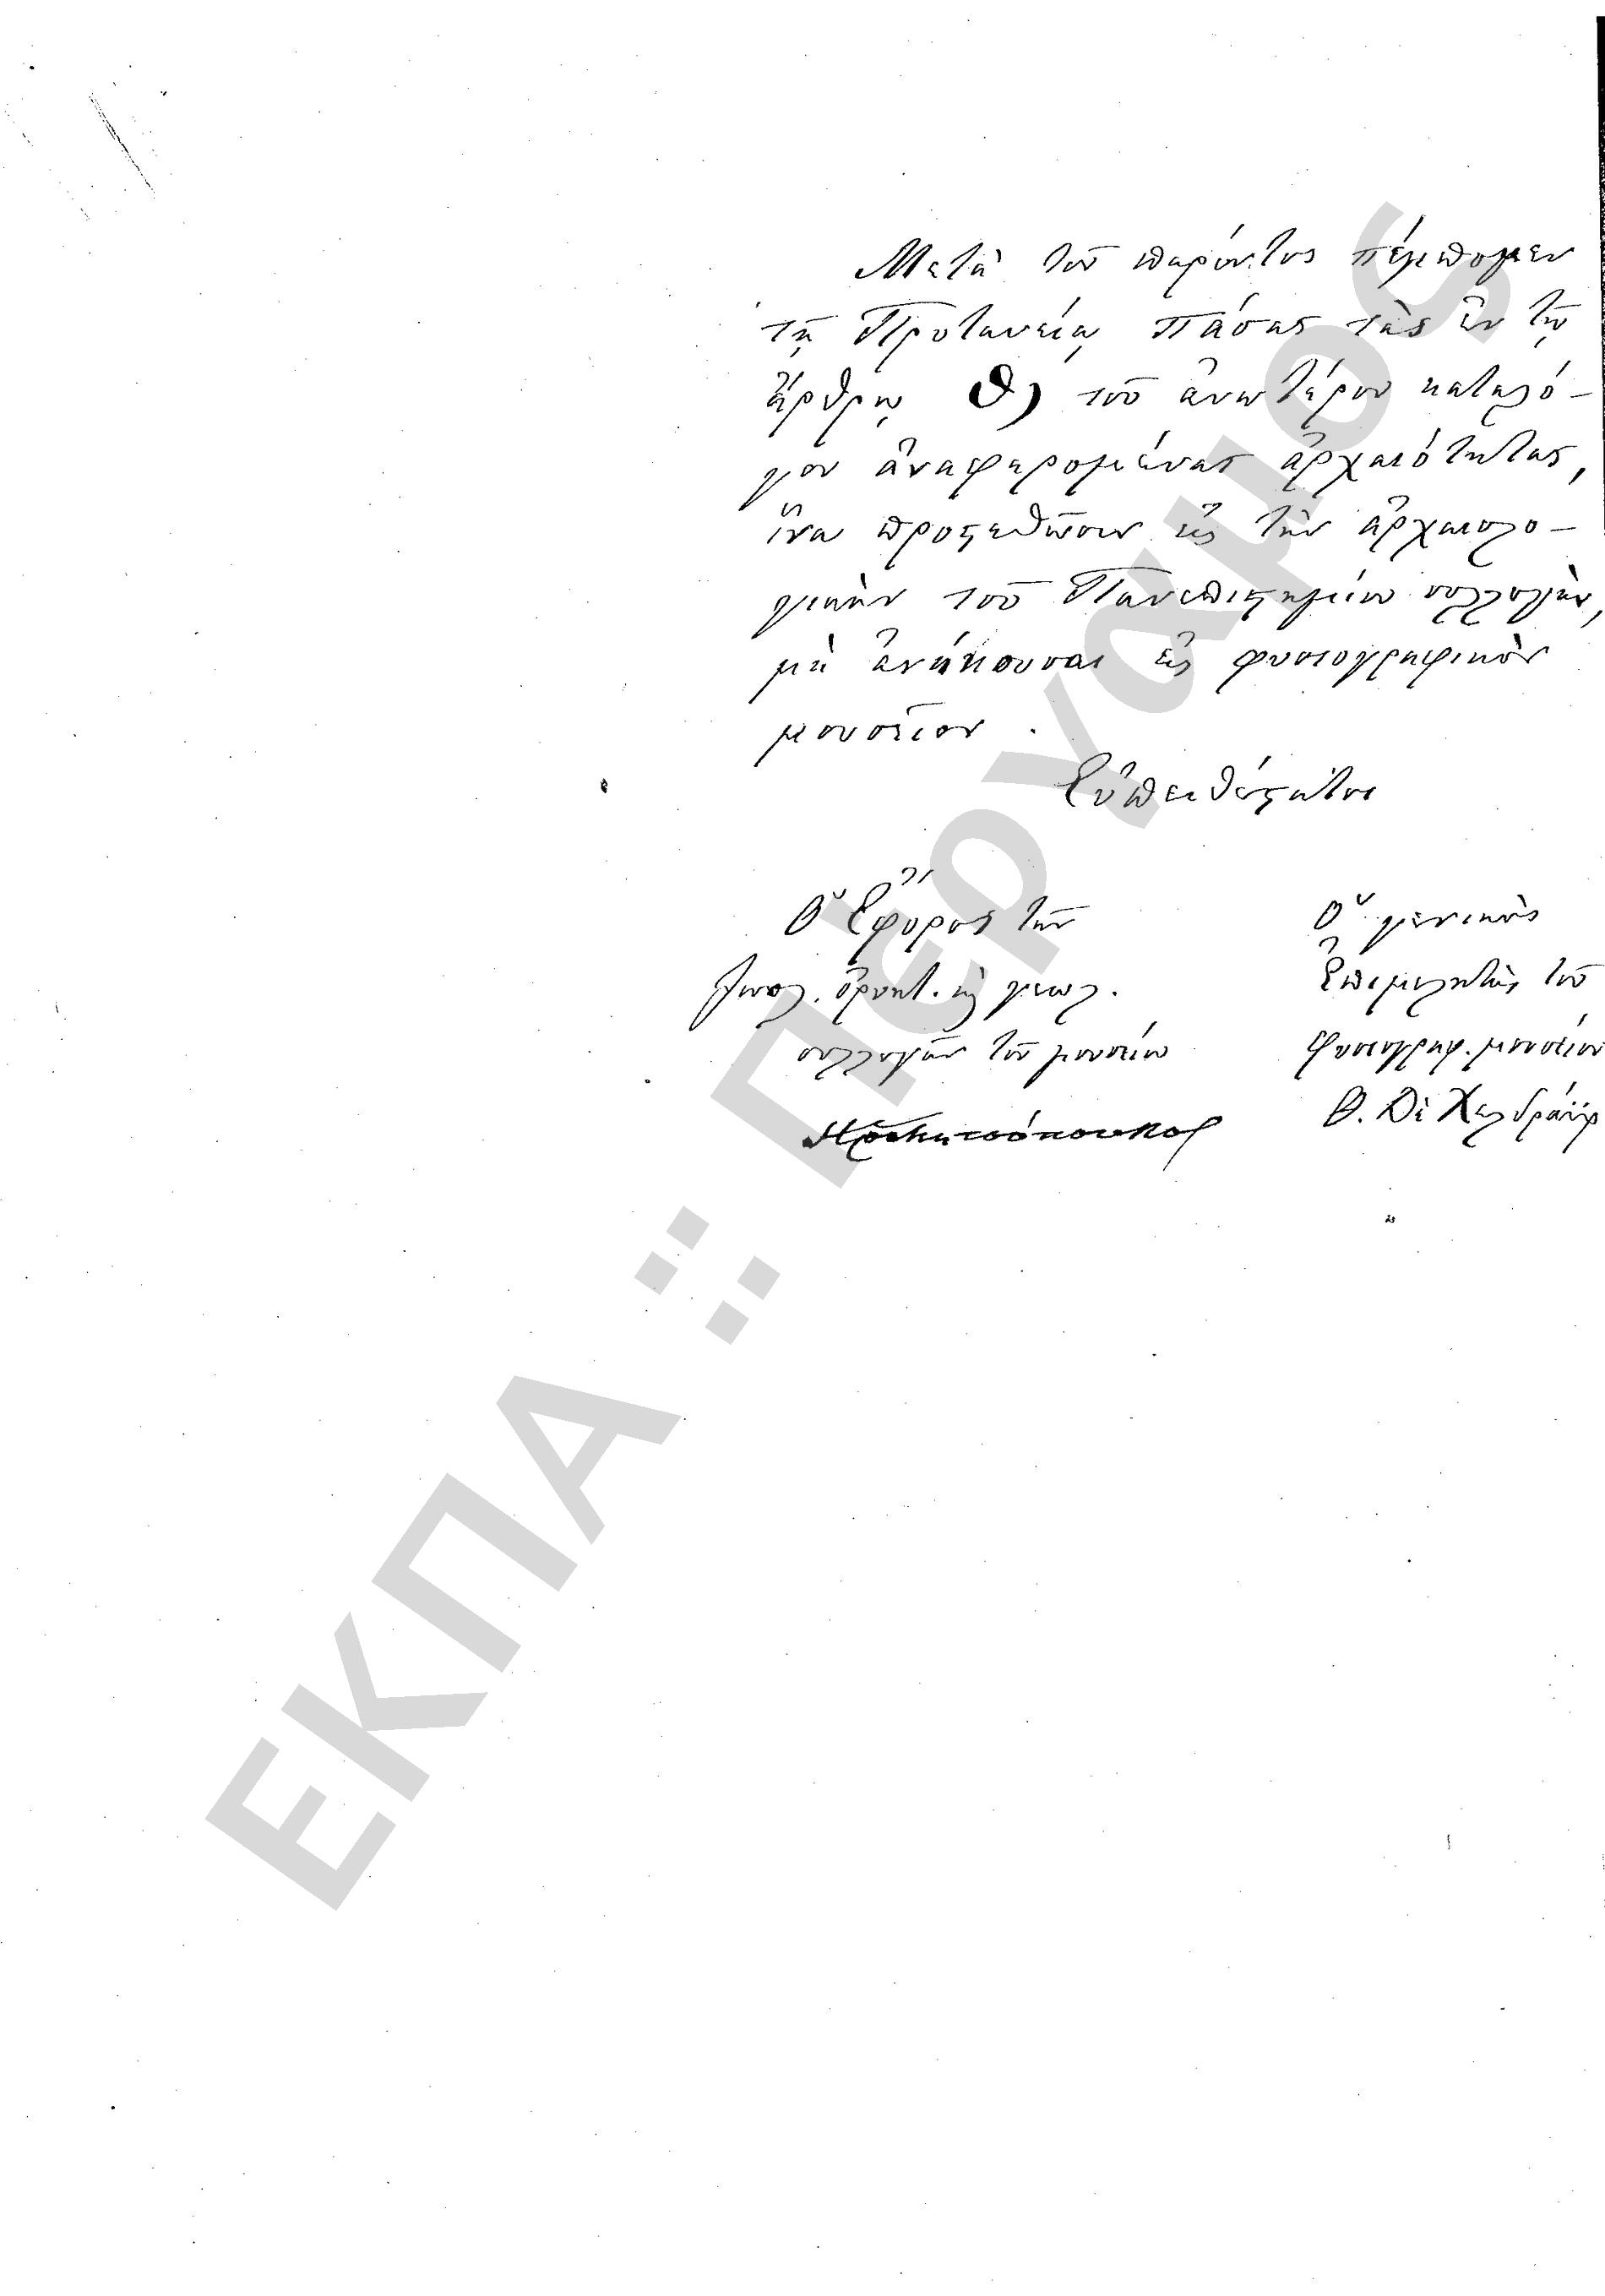 Μετὰ τοῦ παρόντος πέμπομεν
τῇ Πρυτανείᾳ πάσας τὰς ἐν τῷ
ἄρθρῳ θ) τοῦ ἀνωτέρου καταλό-
γου ἀναφερομένας ἀρχαιότητας,
ἵνα προςτεθῶσιν εἰς τὴν ἀρχαιολο-
γικὴν τοῦ Πανεπιστημίου συλλογὴν,
μὴ ἀνήκουσαι εἰς φυσιογραφικὸν
μουσεῖον.
Εὐπειθέστατοι
Ὁ Ἔφορος τῶν
ζωολ. ὀρυκτ. καὶ γεωλ.
συλλογῶν τοῦ μουσείου
Ὁ γενικὸς
ἐπιμελητὴς τοῦ
Φυσιογραφ. μουσείου
Θ. Δὲ Χελδράϊχ
ΕΚΠΑ :: Πέργαμος